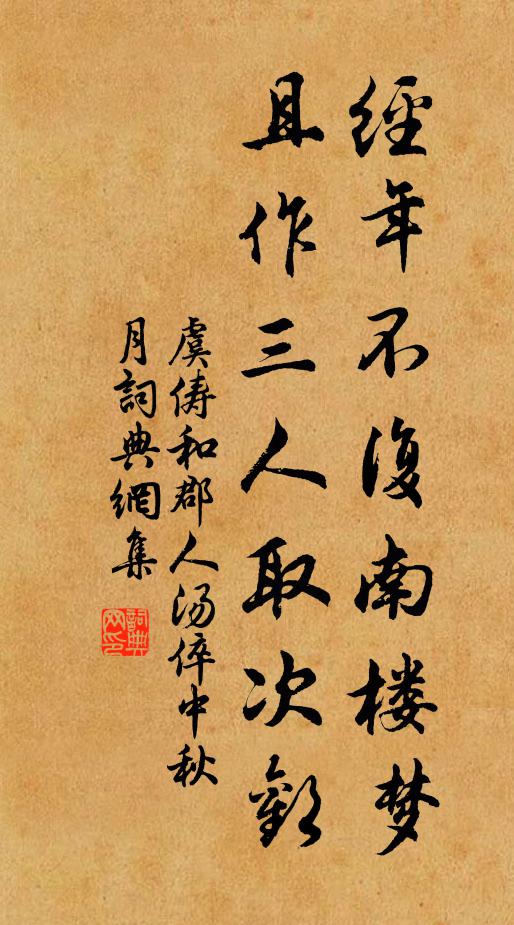 經年不復南楼梦
且作三人取次歡
虞俦和郡人汤倅中秋
月詞典網集
詞典网印